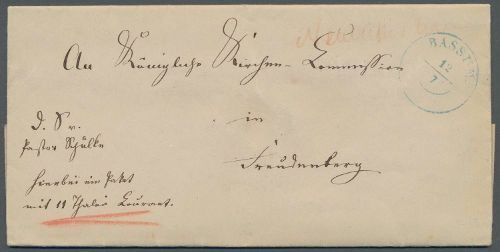 BASSUM
12
7
An Königliche Kirchen-Commission
in
Freudenberg
d. S. v.
Pastor Schülke
hierbei ein Paket
mit 11 Thaler Courant.